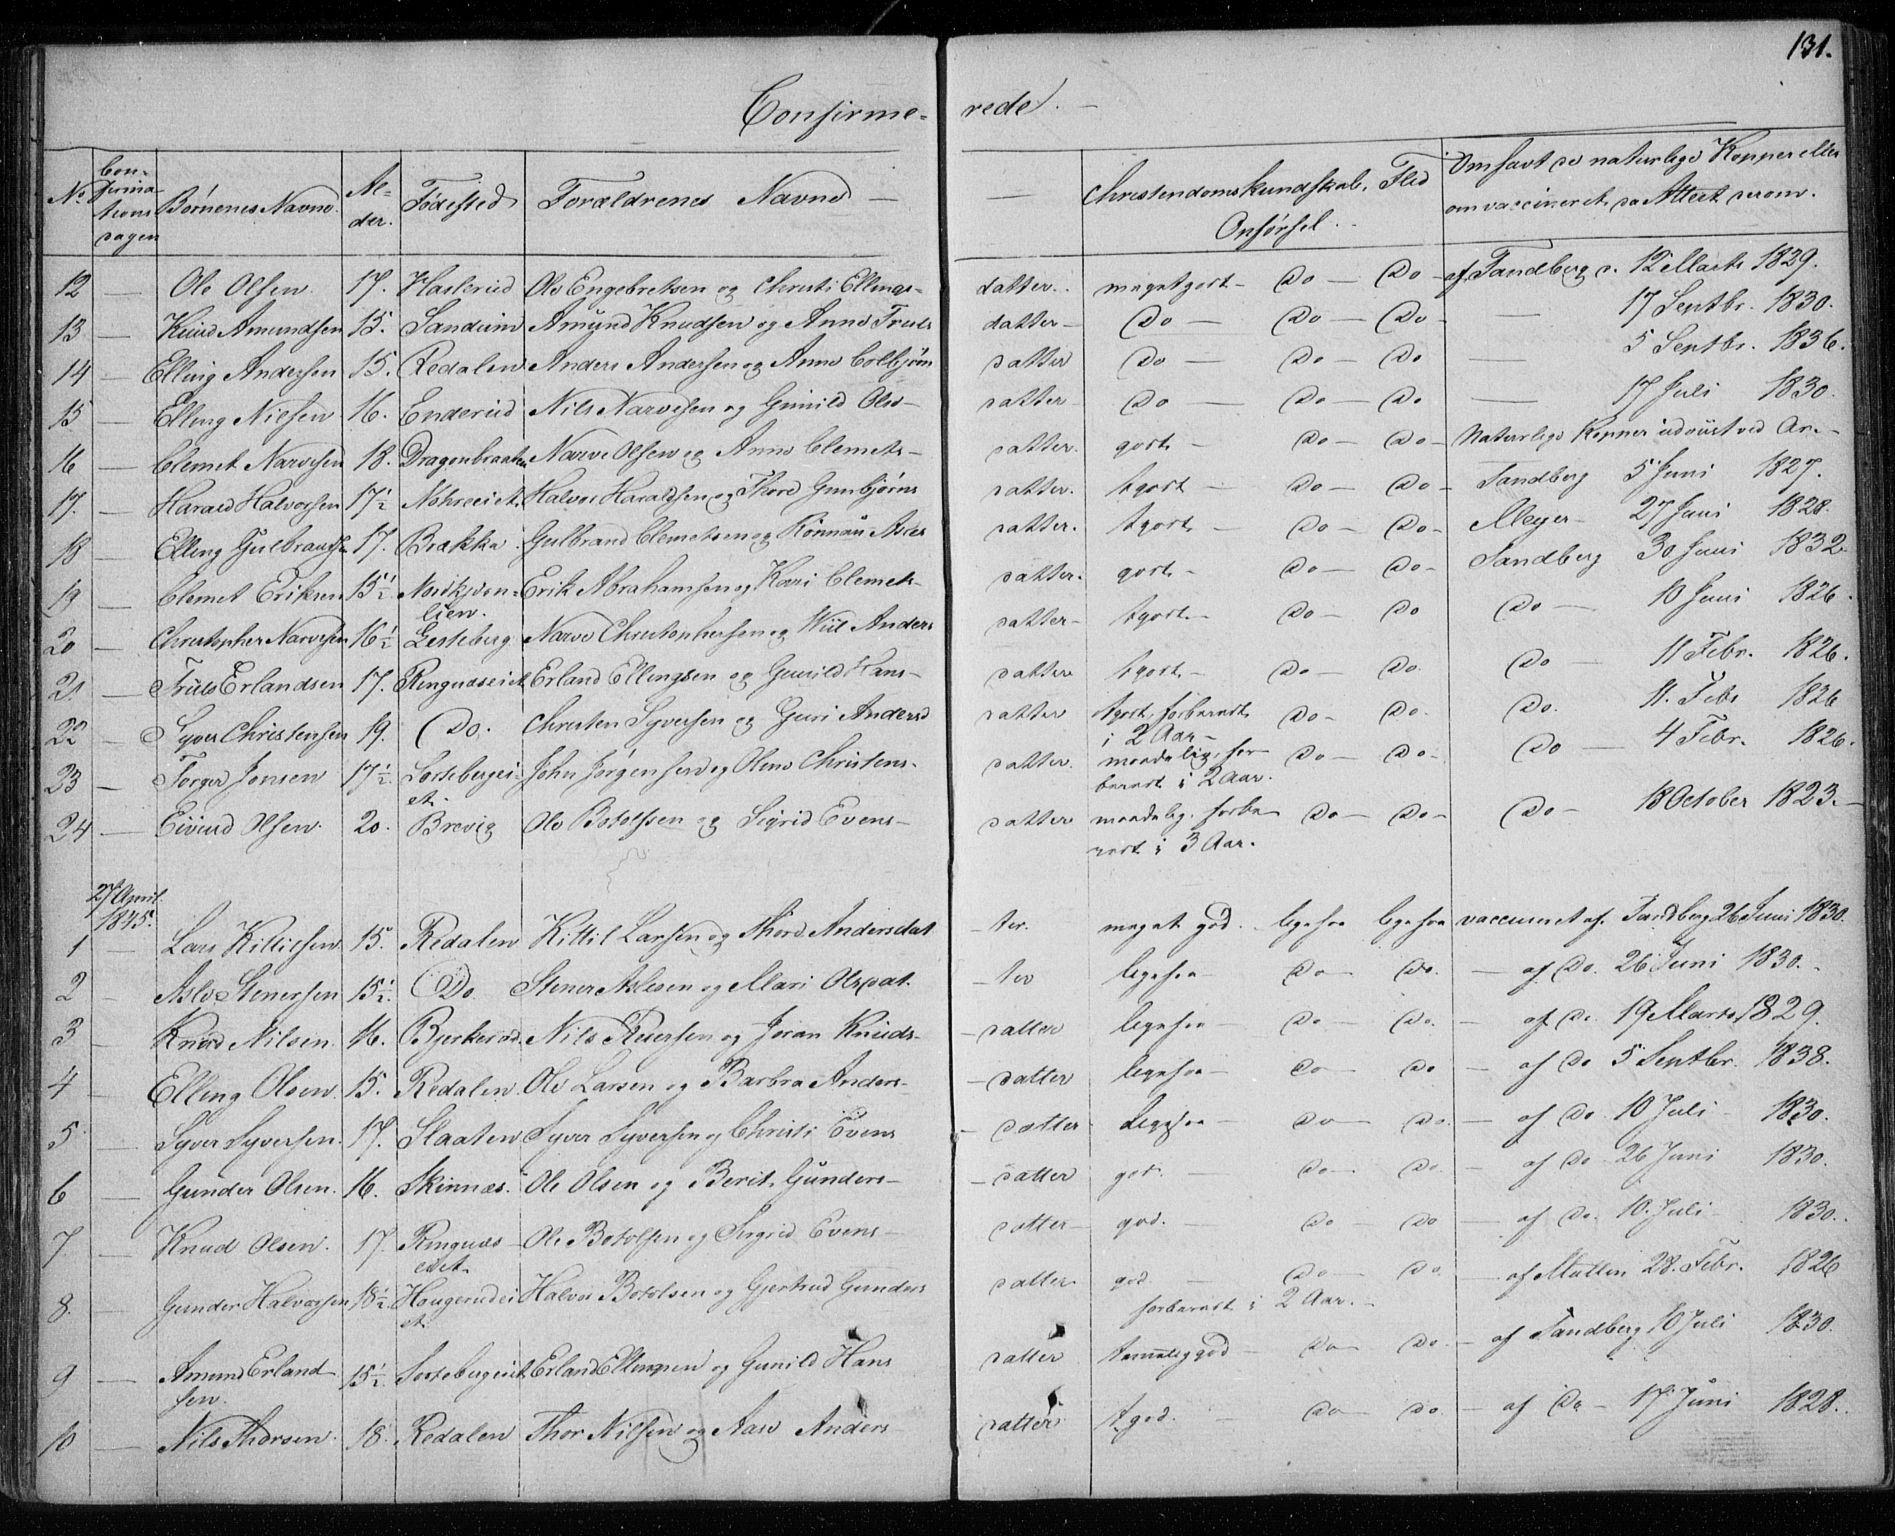 131.
Confirme- rede. —
No. Con- firma- tions dagen Børnenes Navne. Al- der. Fødested Forældrenes Navne — — Christendomskundskab, Flid Opførsel. Om havt de naturlige Kopper eller om vaccineret, da Attest derom.
12 — Ole Olsen. 17. Haslerud Ole Engebretsen og Christi Ellings- datter. meget godt — Do — Do — af Sandberg d. 12 Marts 1829.
13 — Knud Amundsen 15. Sandum Amund Knudsen og Anne Truls datter — Do — Do — Do — — 17 Septbr. 1830.
14 — Elling Andersen 15. Redalen Anders Andersen og Anne Colbjörn datter Do — Do — Do — 5 Septbr. 1836.
15 — Elling Nilsen 16. Enderud Nils Narvesen og Gunild Ols- datter — Do — Do — Do — 17 Juli 1830.
16 — Clemet Narvesen 18. Dragonbraaten Narve Olsen og Anne Clemets- datter. godt — Do — Do — Naturlige Kopper udviist ved Ar. —
17. — Harald Halvorsen 17½ Halvor Haraldsen og Thore Gunbjørns datter. tgodt — Do — Do — Sandberg 5 Juni 1827.
18 — Elling Gulbrandsen 17. Brakka Gulbrand Clemetsen og Rønnau Asles datter. tgodt — Do — Do — Meyer — 27 Juni 1828.
19 — Clemet Eriksen 15½ lien. Erik Abrahamsen og Kari Clemets- datter. godt — Do — Do — Sandberg 30 Juni 1832
20 — Christopher Narvesen 16½ Lesteberg Narve Christophersen og Anders datter — tgodt — Do — Do Do — 10 Juni 1826.
21 — Truls Erlandsen 17. Ringnæseiet Erland Ellingsen og Gunild Hans- datter tgodt — Do — Do. Do — 11 Febr. 1826.
22 — Syver Christensen 19. Do. Christen Syversen og Guri Anders datter tgodt, forberedt i 2 Aar — Do — Do. Do. 11. Febr 1826
23 — Torger Jonsen 17½ Sorteberget- et. John Jörgensen og Olene Christens- datter. maadelig, for- beredt i 2 Aar. Do — Do — Do — 4 Febr. 1826.
24 — Eivind Olsen. 20. Brevig Ole Botolfsen og Sigrid Evens — datter maadelig. forbe- redt i 3 Aar. Do — Do — Do — 18 October 1823. —
27 April 1845.
1 — Lars Kittilsen 15. Redalen Kittil Larsen og Thore Andersdat -ter. meget god. ligesaa ligesaa vaccineret af Sandberg 26 Juni 1830.
2 — Asle Stenersen 15½. Do. Stener Aslesen og Mari Olsdat. -ter ligesaa — Do — Do. — af Do. 26 Juni 1830.
3 — Knud Nilsen. 16. Bjerkerud. Nils Reiersen og Joran Knuds- — datter ligesaa — Do — Do. — af Do. 19 Marts 1829.
4 — Elling Olsen. 15. Redalen. Ole Larsen og Barbra Anders- — datter ligesaa — Do — Do — af Do 5 Septbr. 1838.
5 — Syver Syversen. 17. Slaaten Syver Syversen og Christi Evens — datter Ligesaa — Do — Do. — af Do. 10 Juli — 1830.
6 — Gunder Olsen. 16. Skinnes. Ole Olsen og Berit Gunders — — datter god. — Do — Do. — af Do 26 Juni 1830.
7 — Knud Olsen. 17. Ringnæs- eiet. Ole Botolfsen og Sigrid Evens — datter — god. — Do — Do — af Do. 10. Juli 1830.
8. — Gunder Halvorsen 18½. Haugerudei- et. Halvor Botolsen og Gjertrud Gunders datter — god — forberedt i 2 Aar. — Do — Do. — af Mallin 28. Febr. 1826
9 — Amund Erland- sen. 15½. Sortebergeiet Erland Ellingsen og Gunild Hans datter temmelig god — Do — Do. — af Sandberg 10 Juli 1830.
10 — Nils Thorsen. 18. Redalen Thor Nilsen og Aase Anders datter tgod. — Do — Do. — af Do — 17 Juni 1828.